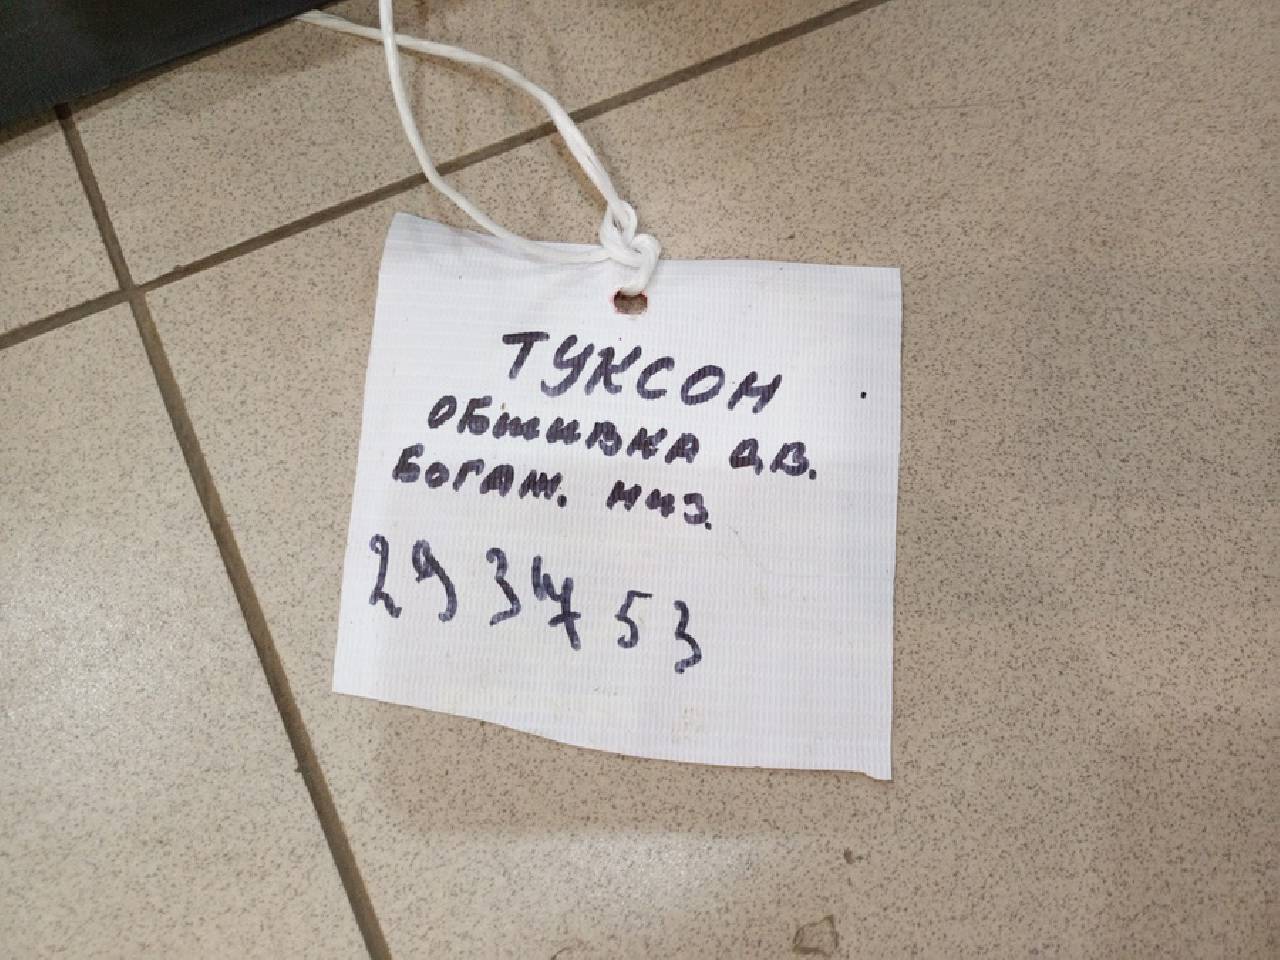 ТУКСОН
ОБШИВКА ДВ.
БОГАЖ. НИЗ.
293753